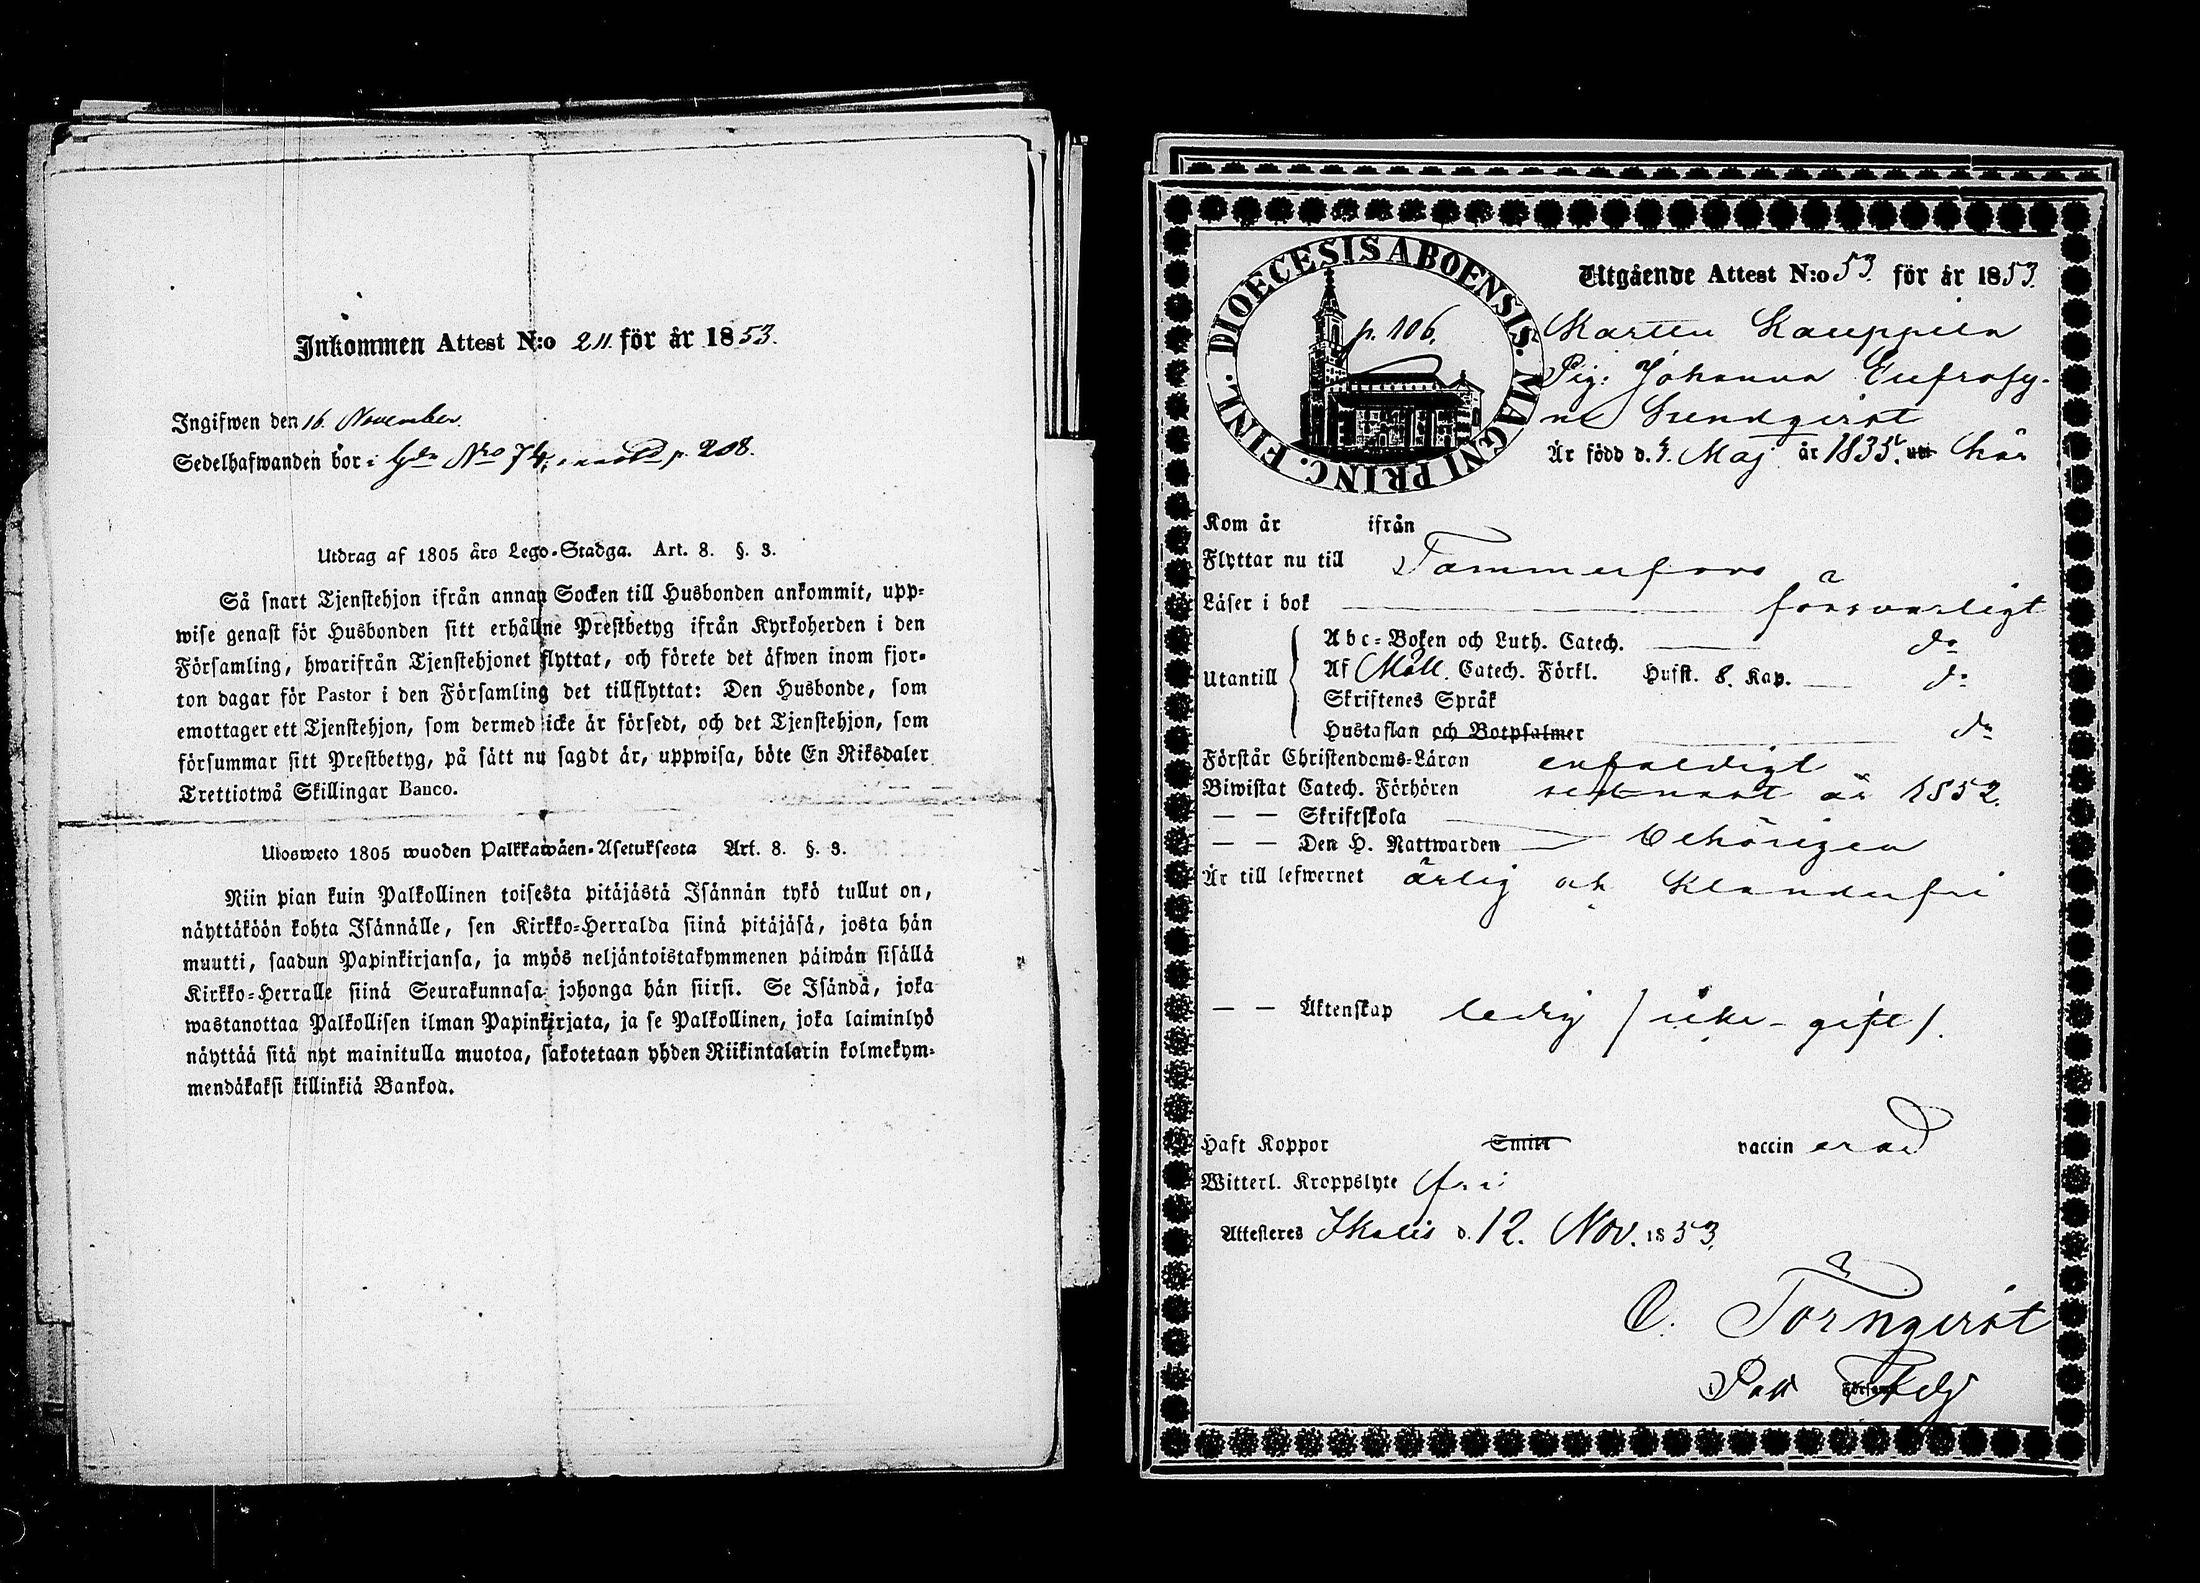 Inkommen Attest N:o 211. för år 1853.
Ingifwen den 16. November.
Sedelhafwanden bor i Gdn Nro 74, p. 208.
Utdrag af 1805 års Lego-Stadga. Art. 8. §. 3.
Så snart Tjenstehjon ifrån annan Socken till Husbonden ankommit, upp-
wise genast för Husbonden sitt erhållne Prestbetyg ifrån Kyrkoherden i den
Församling, hwarifrån Tjenstehjonet flyttat, och förete det äfwen inom fjor-
ton dagar för Pastor i den Församling det tillflyttat: Den Husbonde, som
emottager ett Tjenstehjon, som dermed icke är försedt, och det Tjenstehjon, som
försummar sitt Prestbetyg, på sätt nu sagdt är, uppwisa, böte En Riksdaler
Trettiotwå Skillingar Banco.
Ulosweto 1805 wuoden Palkkawäen-Asetuksesta Art. 8. §. 3.
Niin pian kuin Palkollinen toisesta pitäjästä Isännän tykö tullut on,
näyttäköön kohta Isännälle, sen Kirkko-Herralda siinä pitäjäsä, josta hän
muutti, saadun Papinkirjansa, ja myös neljäntoistakymmenen päiwän sisällä
Kirkko-Herralle siinä Seurakunnasa johonga hän siirsi. Se Isändä, joka
wastanottaa Palkollisen ilman Papinkirjata, ja se Palkollinen, joka laiminlyö
näyttää sitä nyt mainitulla muotoa, sakotetaan yhden Riikintalarin kolmekym-
mendäkaksi killinkiä Bankoa.
DIOECESIS ABOENSIS. MAGNI PRINC. FINL.
p. 106.
Utgående Attest N:o 53 för år 1853.
Karttu Kauppila
Pig: Johanna Eufrosy-
ne Sundqvist
Är född d. 4. Maj år 1835. uti här
Kom år ifrån
Flyttar nu till Tammerfors
Läser i bok försvarligt
Utantill
Abc-Boken och Luth. Catech. do
Af Möll. Catech. Förkl. Husft. 8. Kap. do
Skriftenes Språk
Hustaflan och Botpsalmer do
Förstår Christendoms-Läran enfaldigt
Biwistat Catech. Förhören sednast år 1852.
— — Skriftskola
— — Den H. Nattwarden behörigen
Är till lefwernet ärlig och klanderfri
— — Äktenskap ledig / icke-gift /.
Haft Koppor Smitt vaccinerad
Witterl. Kroppslyte fri
Attesteras Ikalis d. 12. Nov. 1853.
C. Törnqvist